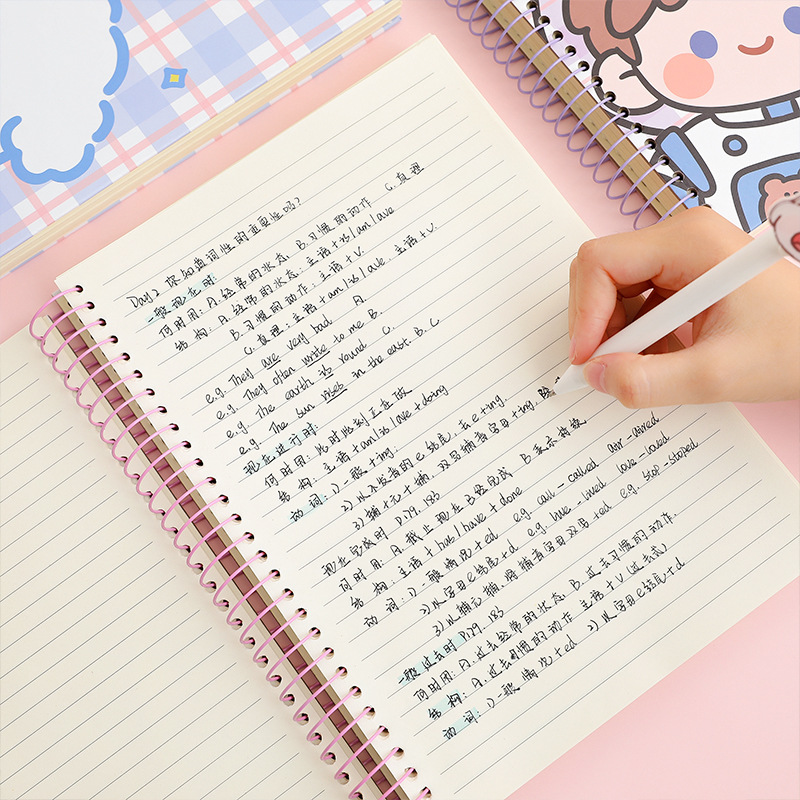 Day2 你知道词性的重要性吗?
一般现在时
何时用: A.经常的状态 B.习惯的动作 C.真理
结构: A.经常的状态: 主语+is/am/are
B.习惯的动作: 主语+v.
C.真理: 主语+am/is/are, 主语+v.
e.g. They are very bad A
e.g. They often write to me B.
e.g. The earth is round C.
e.g. The sun rises in the east. B. C
现在进行时:
何时用: 此时此刻正在做
结构: 主语+am/is/are+doing
动词: 1)一般+ing.
2)以不发音的e结尾, 去e+ing.
3)辅+元+辅, 双写辅音字母+ing.
现在完成时 P.179. 183
何时用: A.截止现在已经完成
结构: 主语+has/have+done
动词: 1)一般情况+ed e.g. call-called
2)以字母e结尾+d e.g. live-lived love-loved
3)以辅元辅, 将辅音字母双写+ed e.g. stop-stopped
一般过去时 P.179. 183
何时用: A.过去经常的状态 B.过去习惯的动作.
结构: A.过去习惯的动作 主语+v(过去式)
动词: 1)一般情况+ed 2)以字母e结尾+d